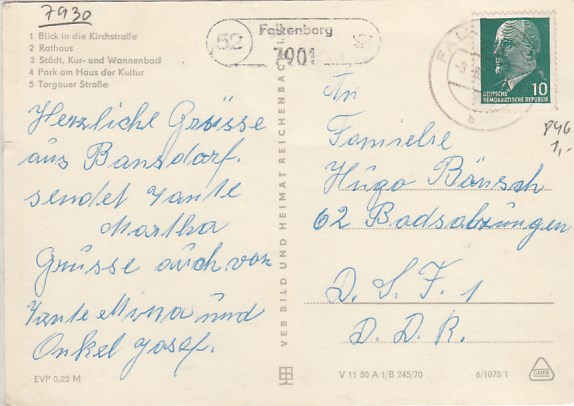 7930
1 Blick in die Kirchstraße
2 Rathaus
3 Städt. Kur- und Wannenbad
4 Park am Haus der Kultur
5 Torgauer Straße
Herzliche Grüsse
aus Bansdorf.
sendet Tante
Martha
Grüsse auch von
Tante Mina und
Onkel Josef.
EVP 0,25 M
VEB BILD UND HEIMAT REICHENBACH
52
Falkenberg
7901
FAL
DEUTSCHE
DEMOKRATISCHE REPUBLIK
10
b
P46
1,-
An
Familie
Hugo Bänsch
62 Badsalzungen
D. S. F. 1
D. D. R.
V 11 50 A 1/B 245/70
6/1078/1